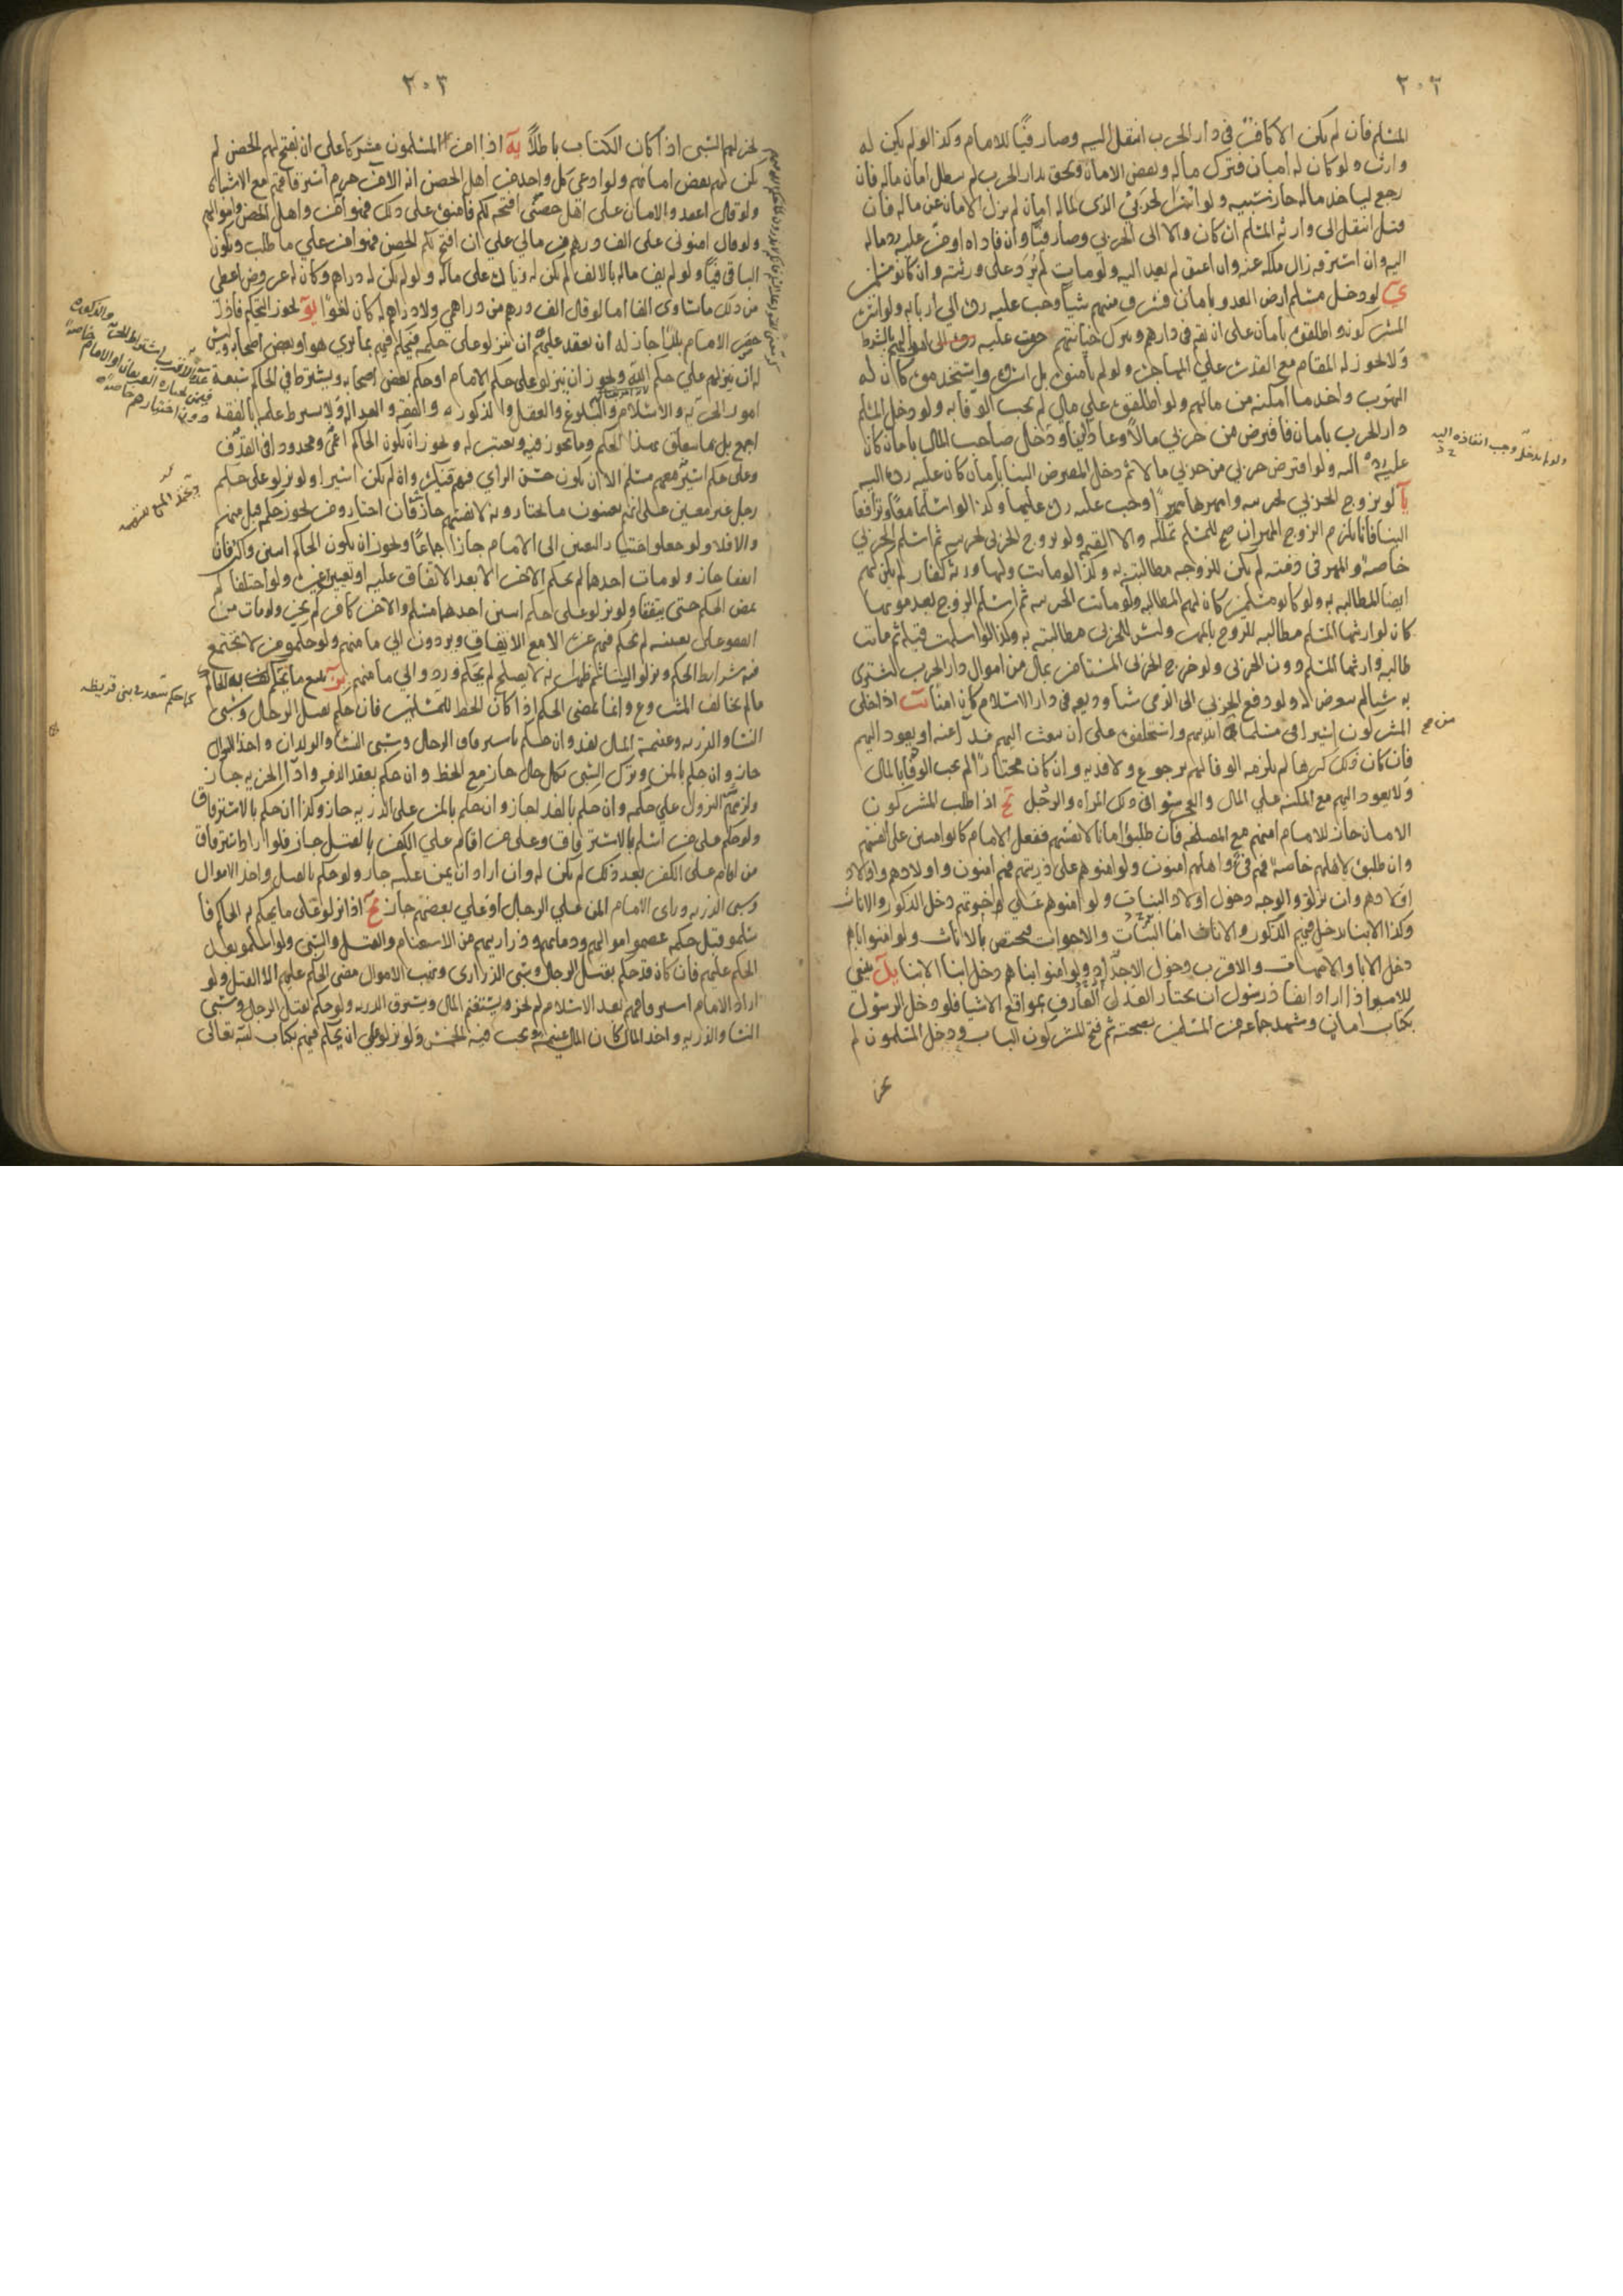 ٢٠٢
المسلم فان لم يكن الا كافر في دار الحرب انتقل اليه وصار فيئا للامام وكذا لو لم يكن له
وارث ولو كان له امان فترك ماله ونقض الامان ولحق بدار الحرب لم يبطل امان ماله فان
رجع لياخذ ماله جاز سبيه ولو اسر الحربي الذي لماله امان لم يزل الامان عن ماله فان
قتل انتقل الى وارثه المسلم ان كان والا الى الحربي وصار فيئا وان فاداه او من عليه رد ماله
اليه وان استرقه زال ملكه عنه وان اعتق لم يعد اليه ولو مات لم يرد على ورثته وان كانوا مسلمين
ي لو دخل مسلم ارض العدو بامان فسرق منهم شيا وجب عليه رده الى اربابه ولو اسر
المشركون واطلقوه بامان على ان يقيم في دارهم وترك خيانتهم حرمت عليه اموالهم بالشرط
ولا يجوز له المقام مع القدرة على المهاجرة ولو لم يامنوه بل استرق واستخدموه كان له
الهرب واخذ ما امكنه من مالهم ولو اطلقوه على مال لم يجب الوفا به ولو دخل المسلم
دار الحرب بامان فاقترض من حربي مالا وعاد الينا ودخل صاحب المال بامان كان
عليه رده اليه ولو اقترض حربي من حربي مالا ثم دخل المقترض الينا بامان كان عليه رده اليه
يا لو تزوج الحربي بحربية وامهرها مهرا وجب عليه رده عليها وكذا لو اسلما معا وترافعا
الينا فانا نلزم الزوج المهر ان صح للمسلم تملكه والا القيمة ولو تزوج الحربي بحربية ثم اسلم الحربي
خاصة والمهر في ذمته لم يكن للزوجة مطالبته به وكذا لو ماتت ولها ورثة كفار لم يكن لهم
ايضا المطالبة به ولو كانوا مسلمين كان لهم المطالبة ولو ماتت الحربية ثم اسلم الزوج بعد موتها
كان لوارثها المسلم مطالبة الزوج بالمهر وليس للحربي مطالبته به وكذا لو اسلمت قبله ثم ماتت
طالبه وارثها المسلم دون الحربي ولو خرج الحربي المستامن بمال من اموال دار الحرب ليشترى
به شيا لم يتعرض له ولو دفع الحربي الى الذمي شيا وديعة في دار الاسلام كان امنا يب اذا خلى
المشركون اسيرا في مسلما من ايديهم واستحلفوه على ان يبعث اليهم فدا عنه او يعود اليهم
فان كان ذلك كرها لم يلزمه الوفا لهم برجوع ولا فدية وان كان مختارا لم يجب الوفا بالمال
ولا يعود اليهم مع المكنة على المال والعجز سوا في ذلك المراه والرجل يج اذا طلب المشركون
الامان جاز للامام امنهم مع المصلحة فان طلبوا امانا لانفسهم ففعل الامام كانوا امنين على انفسهم
وان طلبوه لاهلهم خاصة فهم فئ واهلهم امنون ولو امنوهم على ذريتهم فهم امنون واولادهم واولاد
اولادهم وان نزلوا والوجه دخول اولاد البنات ولو امنوهم على اخوتهم دخل الذكور والاناث
وكذا الابنا يدخل فيهم الذكور والاناث اما البنات والاخوات فيختص بالاناث ولو امنوا اباهم
دخل الابا والامهات والاقرب دخول الاجداد ولو امنوا ابناهم دخل ابنا الابنا يد ينبغي
للامير اذا اراد انفاذ رسول ان يختار العدل العارف بمواقع الاشيا فلو دخل الرسول
بكتاب امان وشهد جماعة من المسلمين بصحته ثم فتح المشركون الباب ودخل المسلمون لم
يجز
ولو لم يدخل وجب انفاذه اليه
من صح
٢٠٣
يجز لهم السبى اذا كان الكتاب باطلا يه اذا امن المسلمون مشركا على ان يفتح لهم الحصن لم
يكن لهم نقض امانهم ولو ادعى كل واحد من اهل الحصن انه الامن حرم استرقاقهم مع الاشتباه
ولو قال اعقدوا الامان على اهل حصنى افتحه لكم فامنوه على ذلك فهو امن واهل الحصن واموالهم
ولو قال امنونى على الف درهم من مالي على ان افتح لكم الحصن فهو امن على ما طلب ويكون
الباقى فيئا ولو لم يف ماله بالالف لم يكن له زيادة على ماله ولو لم يكن له دراهم وكان له عروض اعطى
من ذلك ما تساوى الفا اما لو قال الف درهم من دراهمي ولا دراهم له كان لغوا يو يجوز التحكيم فاذا
حصر الامام بلدا جاز له ان يعقد عليهم ان ينزلوا على حكمه فيحكم فيهم بما يرى هو او بعض اصحابه وليس
له ان ينزلهم على حكم الله ويجوز ان ينزلوا على حكم الامام او حكم بعض اصحابه ويشترط في الحاكم سبعة
امور الحرية والاسلام والبلوغ والعقل والذكورية والفقه والعدالة ولا يشترط علمه بالفقه
اجمع بل بما يتعلق بهذا الحكم وما يجوز فيه ويعتبر له ويجوز ان يكون الحاكم اعمى ومحدودا في القذف
وعلى حكم اسير معهم مسلم الا ان يكون حسن الراي فيهم وان لم يكن اسيرا ولو نزلوا على حكم
رجل غير معين على انهم يعينون ما يختارونه لانفسهم جاز فان اختاروا من يجوز حكمه قبل منهم
والا فلا ولو جعلوا اختيار التعيين الى الامام جاز اجماعا ويجوز ان يكون الحاكم اثنين واكثر فان
اتفقا جاز ولو مات احدهما لم يحكم الاخر الا بعد الاتفاق عليه او تعيين غيره ولو اختلفا لم
يمض الحكم حتى يتفقا ولو نزلوا على حكم اثنين احدهما مسلم والاخر كافر لم يجز ولو مات من
اتفقوا على تعيينه لم يحكم فيهم غيره الا مع الاتفاق ويردون الى مامنهم ولو حكموا من لا تجتمع
فيه شرايط الحكم ونزلوا الينا ثم ظهر انه لا يصلح لم يحكم وردوا الى مامنهم يز يتبع ما يحكم به الحاكم
ما لم يخالف المشروع وانما يمضى الحكم اذا كان الحظ للمسلمين فان حكم بقتل الرجال وسبى
النسا والذرية وغنيمة المال نفذ وان حكم باسترقاق الرجال وسبى النسا والولدان واخذ الاموال
جاز وان حكم بالمن وترك السبى بكل حال جاز مع الحظ وان حكم بعقد الذمة واداء الجزية جاز
ولزمهم النزول على حكمه وان حكم بالفدا جاز وان حكم بالمن على الذرية جاز وكذا ان حكم بالاسترقاق
ولو حكم على من اسلم بالاسترقاق وعلى من اقام على الكفر بالقتل جاز فلو اراد استرقاق
من اقام على الكفر بعد ذلك لم يكن له وان اراد ان يمن عليه جاز ولو حكم بالقتل واخذ الاموال
وسبى الذرية وراى الامام المن على الرجال او على بعضهم جاز يح اذا نزلوا على ما يحكم به الحاكم فا
سلموا قبل حكمه عصموا اموالهم ودماءهم وذراريهم من الاستغنام والقتل والسبى ولو اسلموا بعد
الحكم عليهم فان كان قد حكم بقتل الرجال وسبى الذرارى ونهب الاموال مضى الحكم عليهم الا القتل ولو
اراد الامام استرقاقهم بعد الاسلام لم يجز ويستغنم المال ويسترق الذرية ولو حكم بقتل الرجل وسبى
النسا والذرية واخذ المال كان المال غنيمة ويجب فيه الخمس ولو نزلوا على ان يحكم فيهم بكتاب الله تعالى
كما حكم سعد في بنى قريظه